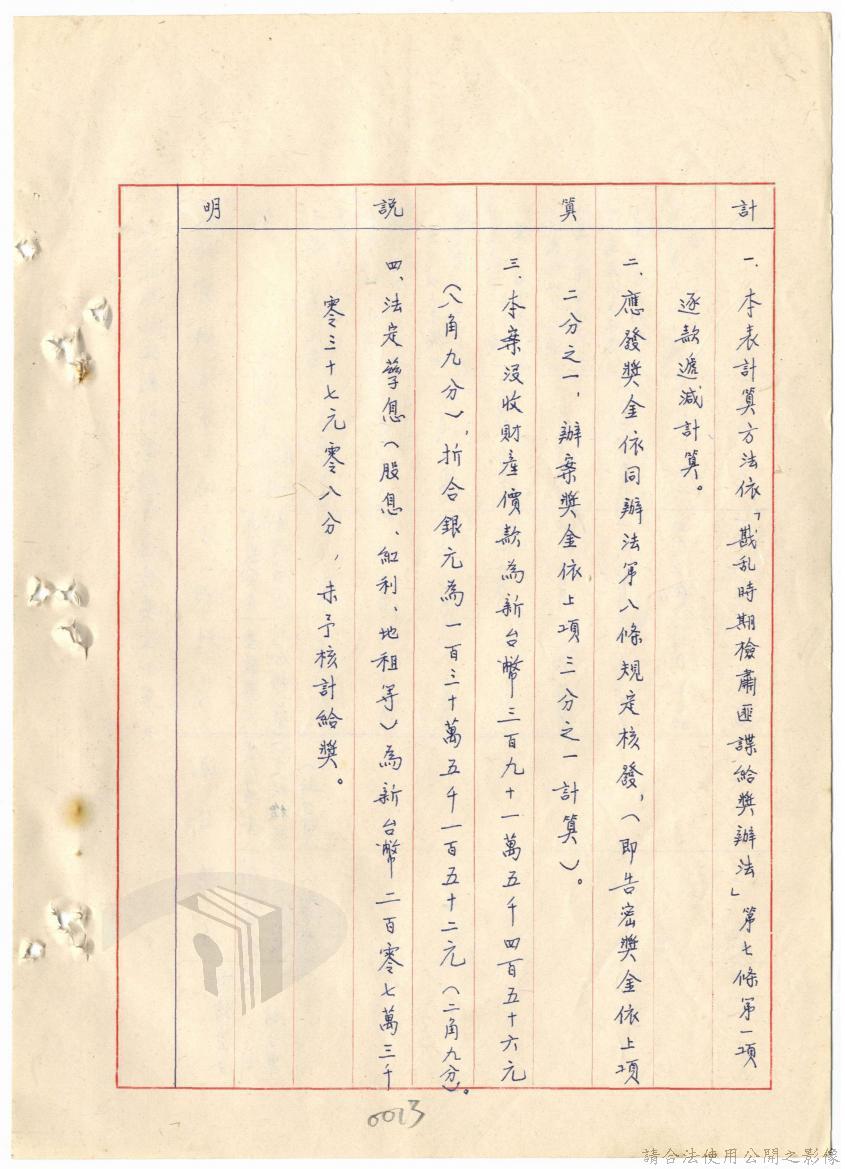 計算說明
一、本表計算方法依「戡乱時期檢肅匪諜給獎辦法」第七條第一項
逐款遞減計算。
二、應發獎金依同辦法第八條規定核發，（即告密獎金依上項
二分之一，辦案獎金依上項三分之一計算）。
三、本案沒收財產價款為新台幣三百九十一萬五千四百五十六元
（八角九分），折合銀元為一百三十萬五千一百五十二元（二角九分）。
四、法定孳息（股息、紅利、地租等）為新台幣二百零七萬三千
零三十七元零八分，未予核計給獎。
0013
請合法使用公開之影像